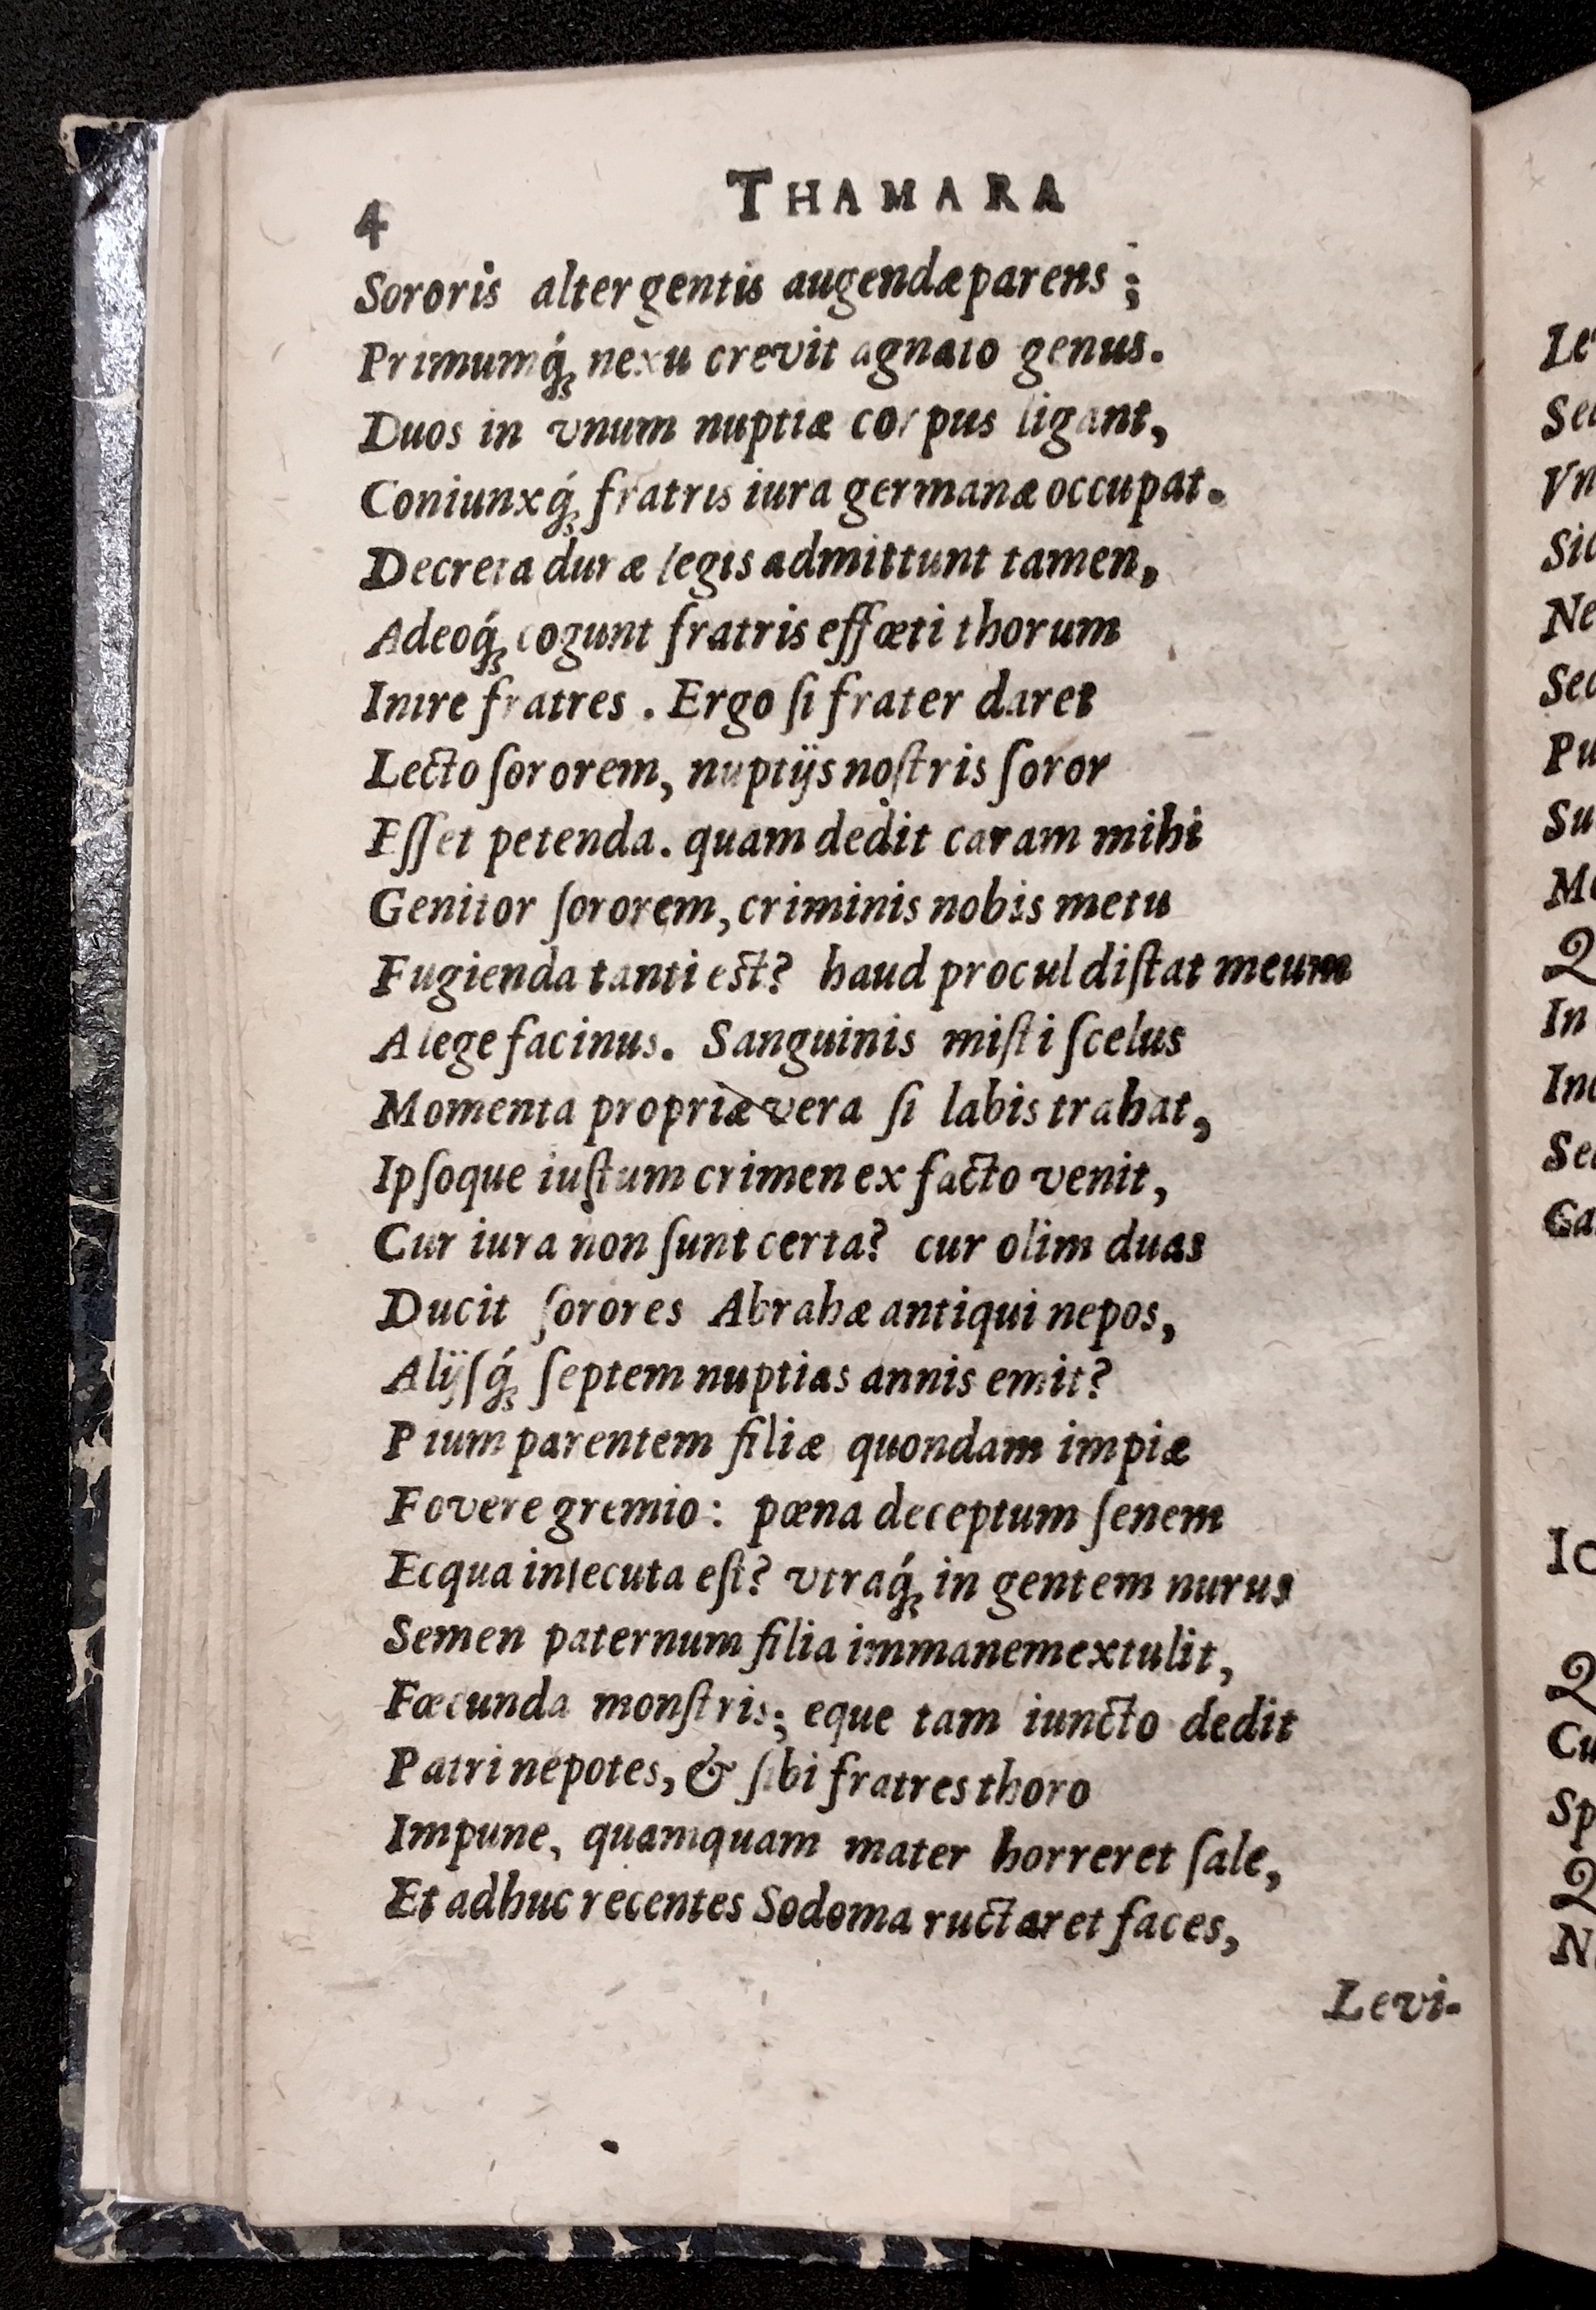 4 THAMARA
Sororis alter gentis augendæ parens;
Primumq́ꝫ nexu crevit agnato genus.
Duos in vnum nuptiæ corpus ligant,
Coniunxq́ꝫ fratris iura germanæ occupat.
Decreta duræ legis admittunt tamen,
Adeoq́ꝫ cogunt fratris effœti thorum
Inire fratres. Ergo ſi frater daret
Lecto ſororem, nuptijs noſtris ſoror
Eſſet petenda. quam dedit caram mihi
Genitor ſororem, criminis nobis metu
Fugienda tanti eſt? haud procul diſtat meum
A lege facinus. Sanguinis miſti ſcelus
Momenta propriæ vera ſi labis trahat,
Ipſoque iuſtum crimen ex facto venit,
Cur iura non ſunt certa? cur olim duas
Ducit ſorores Abrahæ antiqui nepos,
Alijſq́ꝫ ſeptem nuptias annis emit?
Pium parentem filiæ quondam impiæ
Fovere gremio: pœna deceptum ſenem
Ecqua inſecuta eſt? vtraq́ꝫ in gentem nurus
Semen paternum filia immanem extulit,
Fœcunda monſtris; eque tam iuncto dedit
Patri nepotes, & ſibi fratres thoro
Impune, quamquam mater horreret ſale,
Et adhuc recentes Sodoma ructaret faces,
Levi-
Le
Se
Vn
Sic
Ne
Sed
Pu
Su
Me
Q
In
Inc
Sed
Ga
Io
Q
Cu
Sp
Q
N